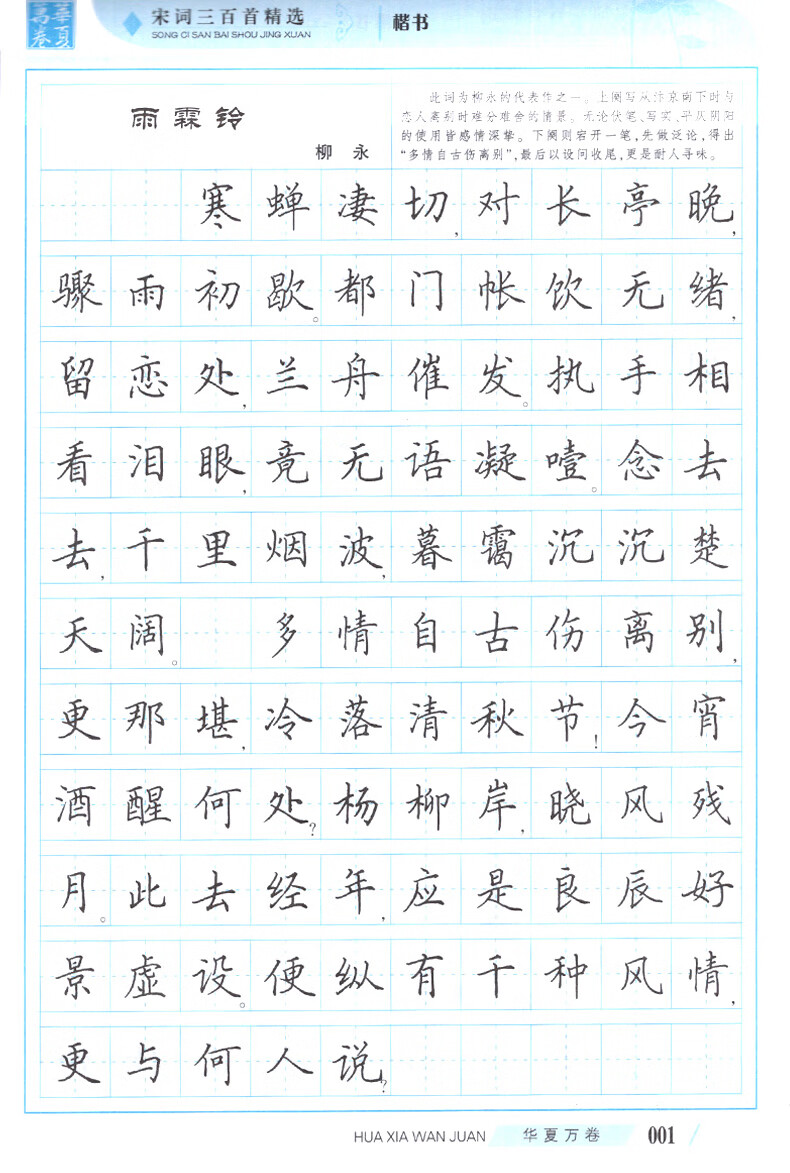 華夏
萬卷
宋词三百首精选
SONG CI SAN BAI SHOU JING XUAN
楷书
雨霖铃
柳永
此词为柳永的代表作之一。上阕写从汴京南下时与
恋人离别时难分难舍的情景。无论伏笔、写实、平仄阴阳
的使用皆感情深挚。下阕则宕开一笔,先做泛论,得出
“多情自古伤离别”,最后以设问收尾,更是耐人寻味。
寒蝉凄切,对长亭晚,
骤雨初歇。都门帐饮无绪,
留恋处,兰舟催发。执手相
看泪眼,竟无语凝噎。念去
去,千里烟波,暮霭沉沉楚
天阔。 多情自古伤离别,
更那堪,冷落清秋节!今宵
酒醒何处?杨柳岸,晓风残
月。此去经年,应是良辰好
景虚设。便纵有千种风情,
更与何人说?
HUA XIA WAN JUAN
华夏万卷
001